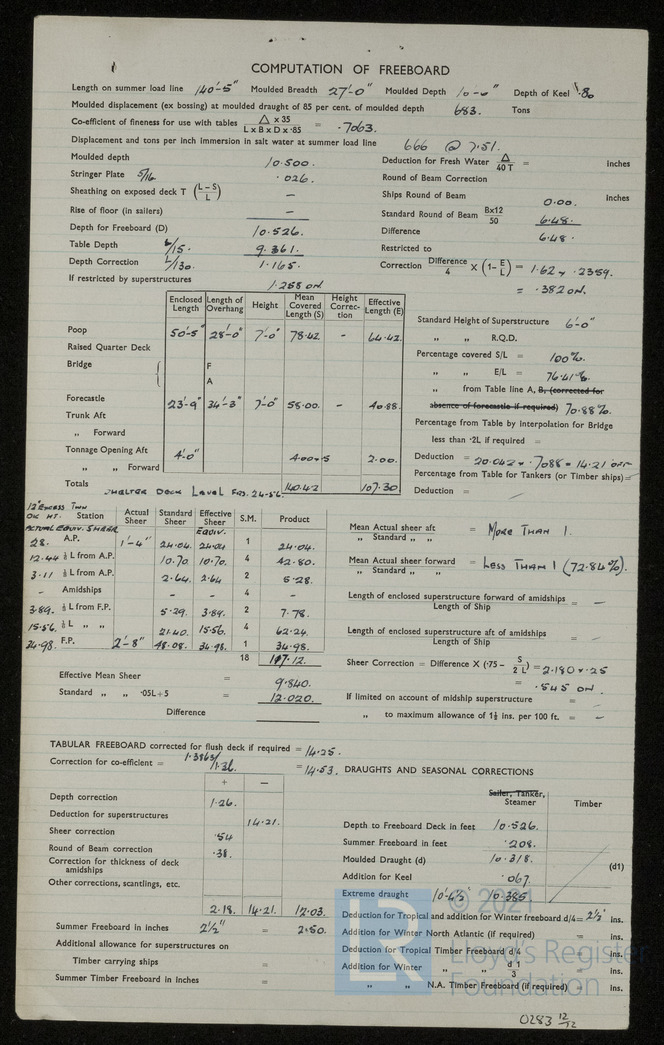 COMPUTATION OF FREEBOARD
Length on summer load line 140'-5" Moulded Breadth 27'-0" Moulded Depth 10-6" Depth of Keel .80
Moulded displacement (ex bossing) at moulded draught of 85 per cent. of moulded depth 683. Tons
Co-efficient of fineness for use with tables △ x 35 / L x B x D x ·85 = .7063.
Displacement and tons per inch immersion in salt water at summer load line 666 @ 7.51.
Moulded depth 10.500. Deduction for Fresh Water △ / 40 T = inches
Stringer Plate 5/16 .026. Round of Beam Correction
Sheathing on exposed deck T (L–S / L) – Ships Round of Beam 0.00. Inches
Rise of floor (in sailers) – Standard Round of Beam Bx12 / 50 6.48.
Depth for Freeboard (D) 10.526. Difference 6.48.
Table Depth L/15. 9.361. Restricted to
Depth Correction L/130. 1.165. Correction Difference / 4 X (1– E / L) = 1.62 x .2359.
If restricted by superstructures 1.258 on = .382 on.
Enclosed Length Length of Overhang Height Mean Covered Length (S) Height Correction Effective Length (E)
Standard Height of Superstructure 6'-0"
Poop 50'-5" 28'-0" 7'-0" 78.42 – 64.42.
" " R.Q.D.
Raised Quarter Deck
Percentage covered S/L = 100%.
Bridge F
" " E/L = 76.41%.
A
" from Table line A, B, (corrected for
Forecastle 23'-9" 34'-3" 7'-0" 58.00. – 40.88.
absence of forecastle if required) 70.88%.
Trunk Aft
Percentage from Table by Interpolation for Bridge
" Forward
less than ·2L if required =
Tonnage Opening Aft 4'-0" 4.00 x .5 2.00.
Deduction = 20.042 x .7088 = 14.21 off
" " Forward
Percentage from Table for Tankers (or Timber ships) =
Totals 140.42 107.30
Deduction = –
SHELTER DECK LEVEL
12" EXCESS TWN
DK HT. Station Actual Sheer Standard Sheer Effective Sheer S.M. Product
ACTUAL EQUIV. SHEER EQUIV.
28. A.P. 1'-4" 24.04. 24.04 1 24.04.
Mean Actual sheer aft / " Standard " " = MORE THAN 1.
12.44 ⅙ L from A.P. 10.70. 10.70. 4 42.80.
3.11 ⅓ L from A.P. 2.64. 2.64 2 5.28.
Mean Actual sheer forward / " Standard " " = LESS THAN 1 (72.84%).
– Amidships – – 4 –
Length of enclosed superstructure forward of amidships / Length of Ship = –
3.89. ⅓ L from F.P. 5.29. 3.89. 2 7.78.
15.56. ⅙ L " " 21.40. 15.56. 4 62.24.
Length of enclosed superstructure aft of amidships / Length of Ship = –
34.98. F.P. 2'-8" 48.08. 34.98. 1 34.98.
18 177.12.
Sheer Correction = Difference X (·75 – S / 2 L) = 2.180 x .25
Effective Mean Sheer = 9.840.
= .545 on.
Standard " " ·05L+5 = 12.020.
If limited on account of midship superstructure = –
Difference
" to maximum allowance of 1½ ins. per 100 ft. = –
TABULAR FREEBOARD corrected for flush deck if required = 14.25.
Correction for co-efficient = 1.3863/1.36 = 14.53.
DRAUGHTS AND SEASONAL CORRECTIONS
+ –
Sailer, Tanker, Steamer Timber
Depth correction 1.26.
Deduction for superstructures 14.21.
Depth to Freeboard Deck in feet 10.526.
Sheer correction .54
Summer Freeboard in feet .208.
Round of Beam correction .38.
Moulded Draught (d) 10.318. (d1)
Correction for thickness of deck amidships
Addition for Keel .067.
Other corrections, scantlings, etc.
Extreme draught 10'-4½" 10.385
2.18. 14.21. 12.03.
Deduction for Tropical and addition for Winter freeboard d/4= 2½" ins.
Summer Freeboard in inches 2½" = 2.50.
Addition for Winter North Atlantic (if required) = ins.
Additional allowance for superstructures on
Deduction for Tropical Timber Freeboard d/4 = ins.
Timber carrying ships =
Addition for Winter " " d 1 / 3 = ins.
Summer Timber Freeboard in Inches =
" " N.A. Timber Freeboard (if required) = ins.
© 2021
LR Lloyd's Register
Foundation
0283 12/12